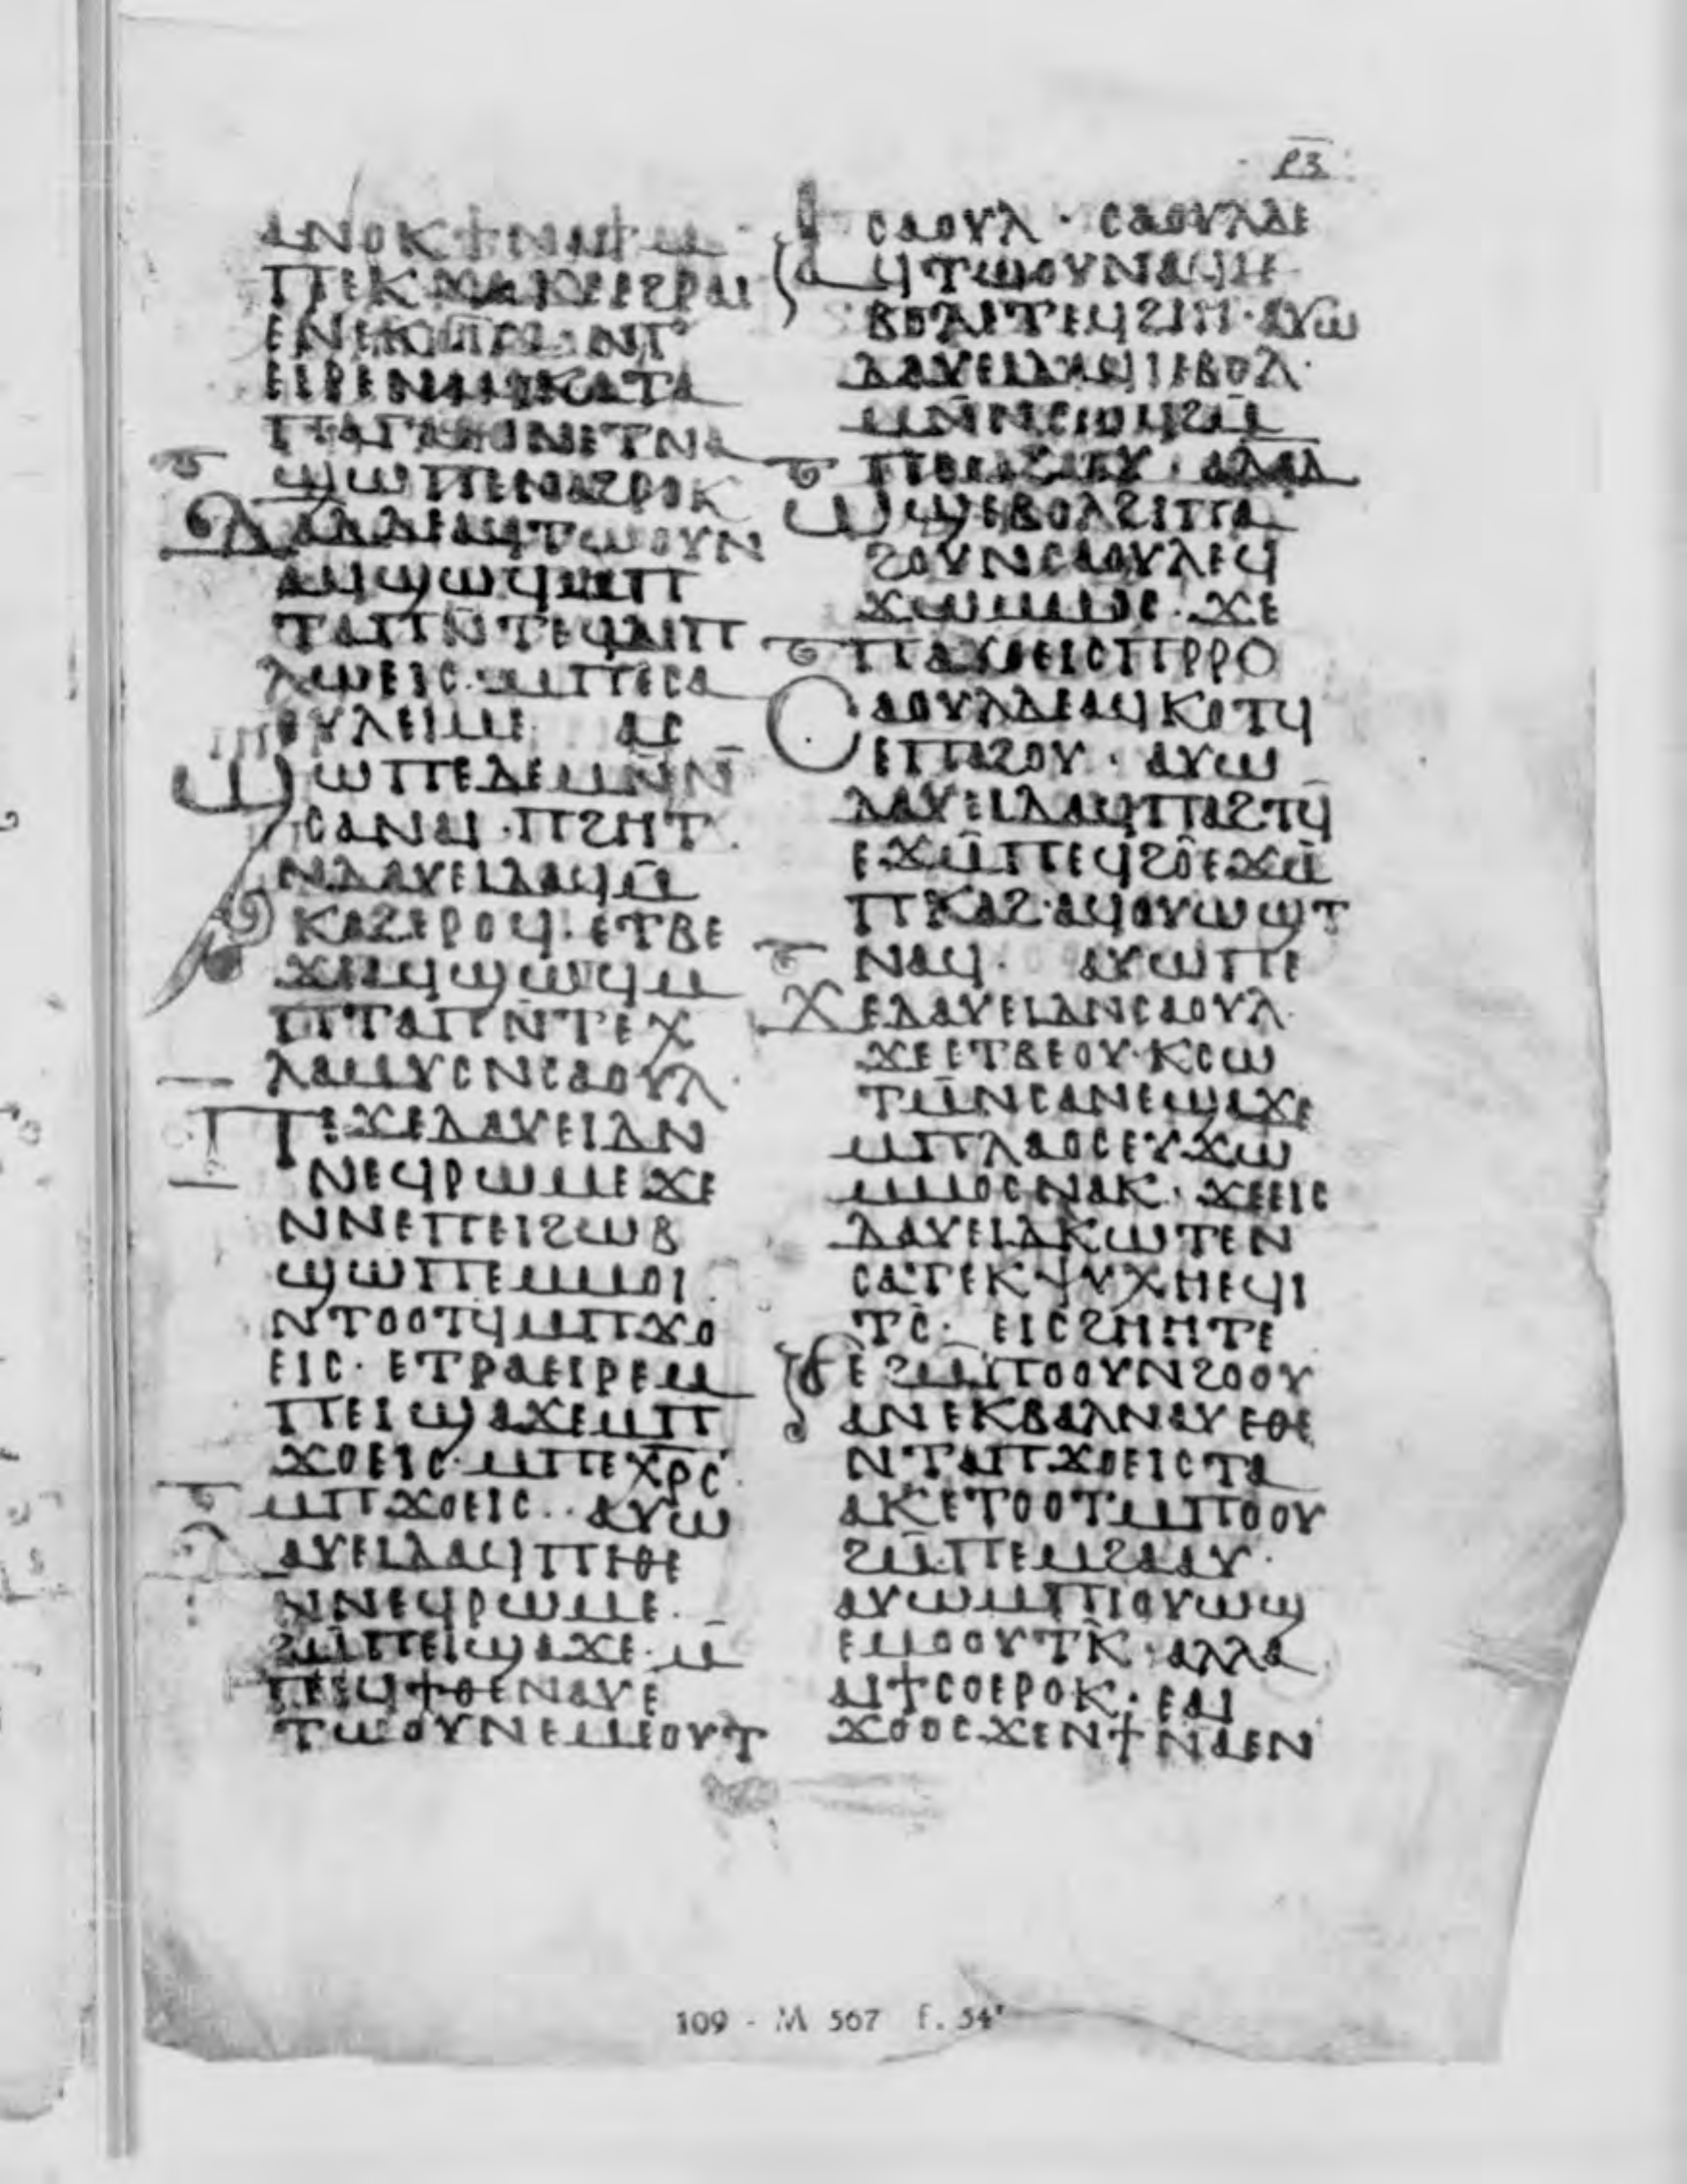 ⲣⲍ
ⲁⲛⲟⲕϯⲛⲁϯⲙ
ⲡⲉⲕϫⲁϫⲉⲉϩⲣⲁⲓ
ⲉⲛⲉⲕϭⲓϫ ⲛⲅ
ⲉⲓⲣⲉⲛⲁϥⲕⲁⲧⲁ
ⲡⲁⲅⲁⲑⲟⲛⲉⲧⲛⲁ
ϣⲱⲡⲉⲛⲛⲁϩⲣⲁⲕ
ⲇⲁⲇⲇⲉⲁϥⲧⲱⲟⲩⲛ
ⲁϥϣⲱⲱϥⲙⲡ
ⲧⲁⲡⲛ̄ⲧⲉϥⲇⲓⲡ
ⲗⲱⲉⲓⲥ·ⲙⲡⲉⲥⲁ
ⲟⲩⲗⲉⲓⲙⲉ ⲁⲥ
ϣⲱⲡⲉⲇⲉⲙⲛ̄ⲛ̄
ⲥⲁⲛⲁⲓ·ⲡϩⲏⲧ
ⲛⲇⲁⲩⲉⲓⲇⲁϥⲙ̄
ⲕⲁϩⲉⲣⲟϥ·ⲉⲧⲃⲉ
ϫⲉⲁϥϣⲱⲱϥⲙ
ⲡⲧⲁⲡⲛ̄ⲧⲉⲭ
ⲗⲁⲙⲩⲥⲛⲥⲁⲟⲩⲗ·
ⲡⲉϫⲉⲇⲁⲩⲉⲓⲇⲛ
ⲛⲉϥⲣⲱⲙⲉϫⲉ
ⲛⲛⲉⲡⲉⲓϩⲱⲃ
ϣⲱⲡⲉⲙⲙⲟⲓ
ⲛⲧⲟⲟⲧϥⲙⲡϫⲟ
ⲉⲓⲥ·ⲉⲧⲣⲁⲉⲓⲣⲉⲙ
ⲡⲉⲓϣⲁϫⲉⲙⲡ
ϫⲟⲉⲓⲥ·ⲙⲡⲉⲭⲣ̄ⲥ̄
ⲙⲡϫⲟⲉⲓⲥ·· ⲁⲩⲱ
ⲇⲁⲩⲉⲓⲇⲁϥⲡⲓⲑⲉ
ⲛⲛⲉϥⲣⲱⲙⲉ·
ϩⲙ̄ⲡⲉⲓϣⲁϫⲉ·ⲙ̄
ⲡⲉϥϯⲑⲉⲛⲁⲩⲉ
ⲧⲱⲟⲩⲛⲉⲙⲉⲟⲩⲧ
ⲥⲁⲟⲩⲗ· ⲥⲁⲟⲩⲗⲇⲉ
ⲁϥⲧⲱⲟⲩⲛⲁϥⲉⲓ
ⲉⲃⲟⲗϩⲓⲧⲉϥϩⲓⲏ·ⲁⲩⲱ
ⲇⲁⲩⲉⲓⲇⲁϥⲓⲉⲃⲟⲗ·
ⲙⲛ̄ⲛⲥⲱϥϩⲙ̄
ⲡⲉⲥⲡⲏⲗⲁⲓⲟⲛ· ⲁϥⲱ
ϣⲉⲃⲟⲗϩⲓⲡⲁ
ϩⲟⲩⲛⲥⲁⲟⲩⲗⲉϥ
ϫⲱⲙⲙⲟⲥ·ϫⲉ
ⲡⲁϫⲟⲉⲓⲥⲡⲣⲣⲟ
ⲥⲁⲟⲩⲗⲇⲉⲁϥⲕⲟⲧϥ
ⲉⲡⲁϩⲟⲩ· ⲁⲩⲱ
ⲇⲁⲩⲉⲓⲇⲁϥⲡⲁϩⲧϥ
ⲉϫⲙ̄ⲡⲉϥϩⲟⲉϫⲙ̄
ⲡⲕⲁϩ·ⲁϥⲟⲩⲱϣⲧ
ⲛⲁϥ· ⲁⲩⲱⲡⲉ
ϫⲉⲇⲁⲩⲉⲓⲇⲛⲥⲁⲟⲩⲗ·
ϫⲉⲉⲧⲃⲉⲟⲩ·ⲕⲥⲱ
ⲧⲙ̄ⲛⲥⲁⲛⲉϣⲁϫⲉ
ⲙⲡⲗⲁⲟⲥⲉⲩϫⲱ
ⲙⲙⲟⲥⲛⲁⲕ·ϫⲉⲉⲓⲥ
ⲇⲁⲩⲉⲓⲇⲕⲱⲧⲉⲛ
ⲥⲁⲧⲉⲕⲯⲩⲭⲏⲉϥⲓ
ⲧⲥ̄· ⲉⲓⲥϩⲏⲏⲧⲉ
ϭⲉ ϩⲙ̄ⲡⲟⲟⲩⲛϩⲟⲟⲩ
ⲁⲛⲉⲕⲃⲁⲗⲛⲁⲩⲉⲑⲉ
ⲛⲧⲁⲡϫⲟⲉⲓⲥⲧⲁ
ⲁⲕⲉⲧⲟⲟⲧⲙⲡⲟⲟⲩ
ϩⲙ̄ⲡⲉⲙϩⲁⲁⲩ·
ⲁⲩⲱⲙⲡⲓⲟⲩⲱϣ
ⲉⲙⲟⲟⲩⲧⲕ̄·ⲁⲗⲗⲁ
ⲁⲓϯⲥⲟⲉⲣⲟⲕ·ⲉⲁⲓ
ϫⲟⲟⲥϫⲉⲛϯⲛⲁⲉⲛ
109 - M 567 f. 54ʳ